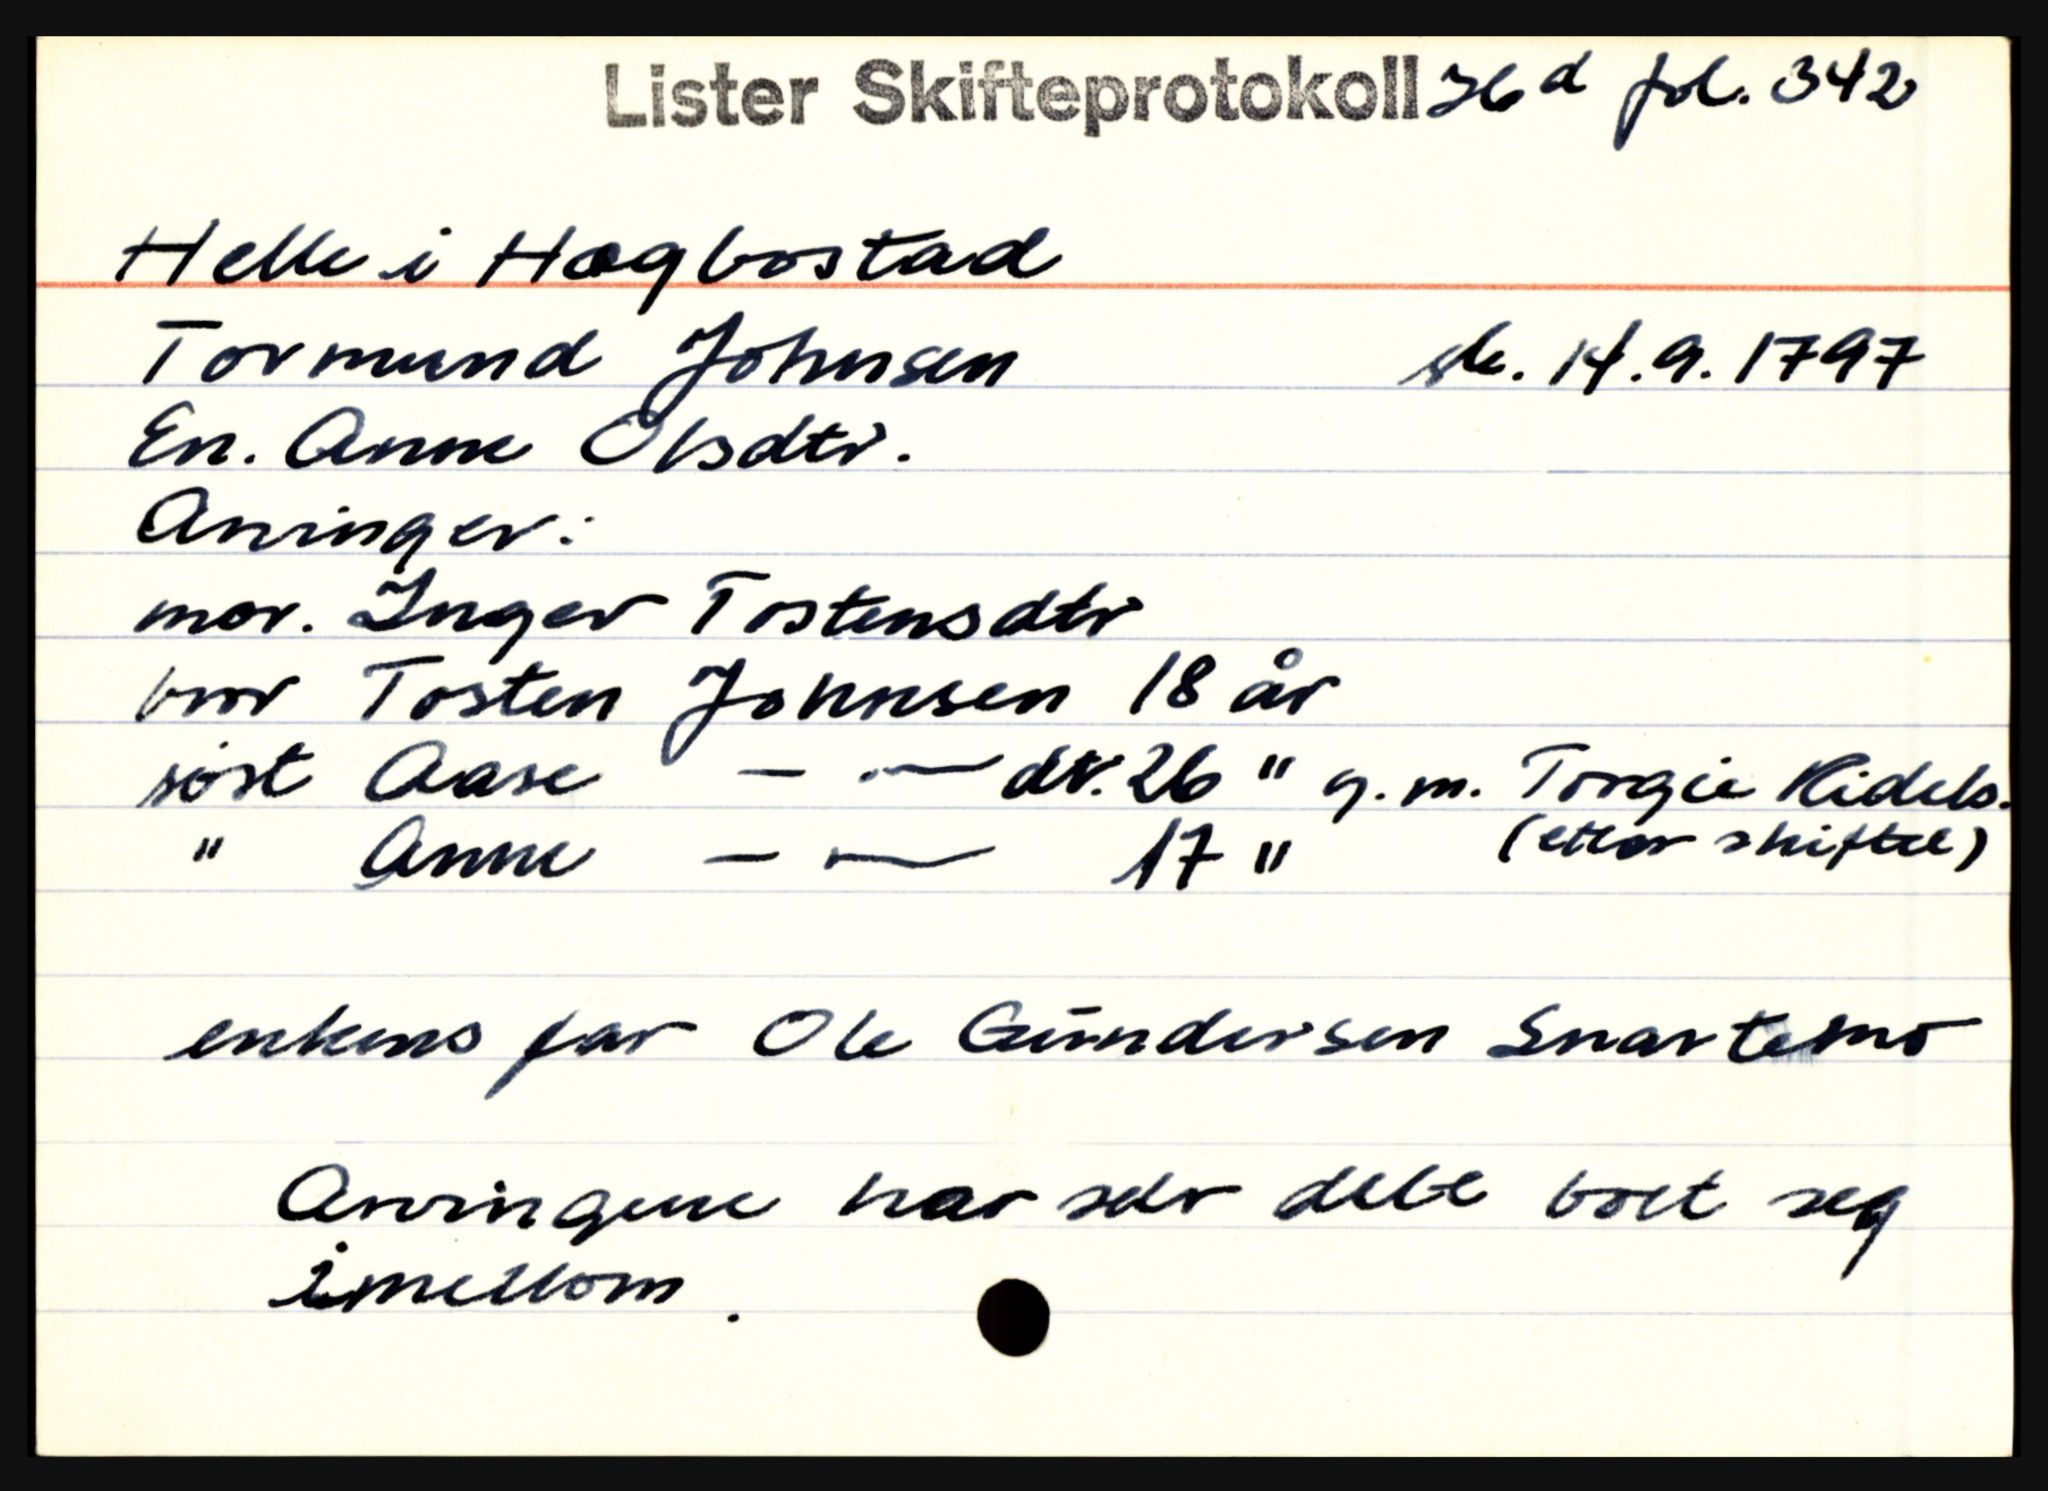 Lister Skifteprotokoll 36 d fol. 342
Helle i Hægbostad
Tormund Johnsen sk. 14.9.1797
En. Anne Olsdtr.
Arvinger:
mor. Inger Tostensdtr
bror Tosten Johnsen 18 år
søst Aase — — dtr. 26 " g.m. Torgie Kidels.
" Anne — — 17 " (etter skiftet)
enkens far Ole Gundersen Snartemo
Arvingene har selv delt boet seg
imellom.